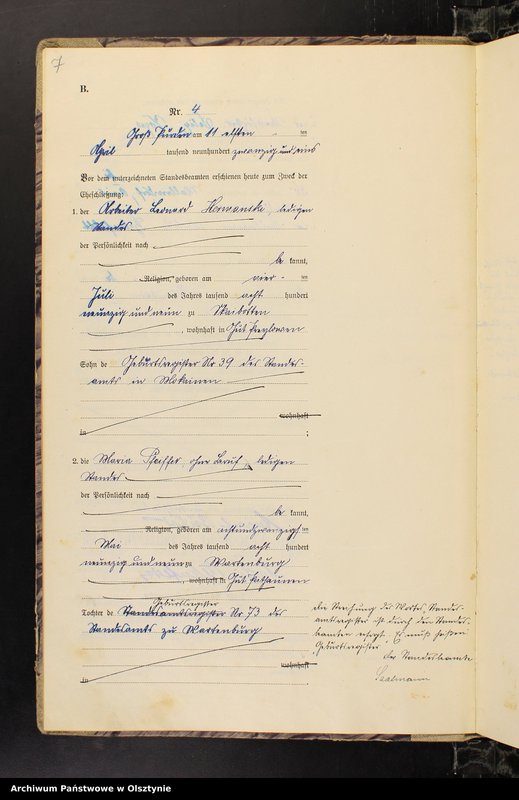 7
B.
Nr. 4
Groß Purden am 11 elften ten
April tausend neunhundert zwanzig und eins
Vor dem unterzeichneten Standesbeamten erschienen heute zum Zweck der
Eheschließung:
1. der Arbeiter Leonard ledigen
Standes
der Persönlichkeit nach
be kannt,
Religion, geboren am vier ten
Juli des Jahres tausend acht hundert
neunzig und neun zu
, wohnhaft in Gut
Sohn de Geburtsregister Nr 39 des Standes-
amts in Mokainen
wohnhaft
in ;
2. die Maria Pfeiffer, ohne Beruf, ledigen
Standes
der Persönlichkeit nach
be kannt,
Religion, geboren am achtundzwanzigsten
Mai des Jahres tausend acht hundert
neunzig und neun zu Wartenburg
, wohnhaft in Gut
Geburtsregister
Tochter de Standesamtsregister Nr 73 des
Standesamts zu Wartenburg
wohnhaft
in
Die Streichung des Wortes Standes-
amtsregister ist durch den Standes-
beamten erfolgt. Es muß heißen
Geburtsregister
Der Standesbeamte
Saalmann
Archiwum Państwowe w Olsztynie